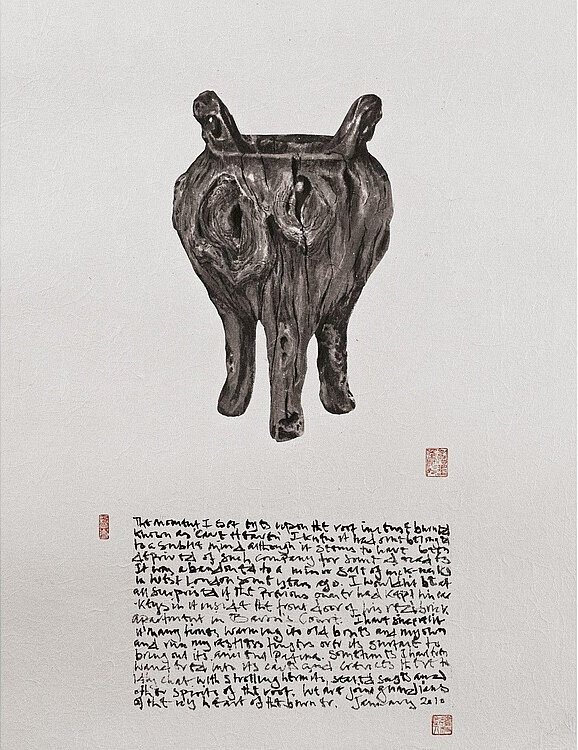 The moment I set eyes upon the root incense burner
known as 'Cave Heaven' I knew it had once belonged
to a subtle mind although it seems to have been
deprived of such company for some decades
It was abandoned to a minor sale of nick-nacks
in West London some years ago. I wouldn't be at
all surprised if the previous owner had kept his car
-keys in it inside the front door of his red brick
apartment in Baron's Court. I have since lit
it many times, warming its old bones and my own
and run my restless fingers over its surface to
bring out its ancient patina. Sometimes I have even
wandered into its caves and crevices there to
idly chat with strolling hermits, seated sages and
other spirits of the root. We are joint guardians
of the icy heart of the burner. January 2010